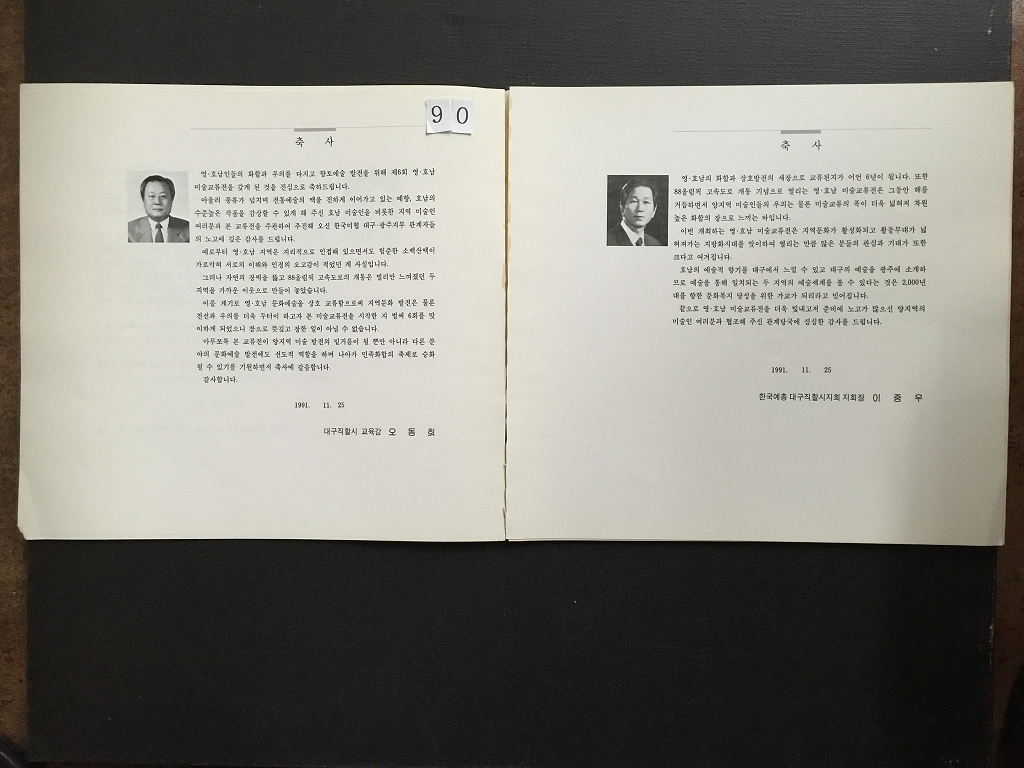 90
축 사
영·호남인들의 화합과 우의를 다지고 향토예술 발전을 위해 제6회 영·호남
미술교류전을 갖게 된 것을 진심으로 축하드립니다.
아울러 풍류가 넘치며 전통예술의 맥을 진하게 이어가고 있는 예향, 호남의
수준높은 작품을 감상할 수 있게 해 주신 호남 미술인을 비롯한 지역 미술인
여러분과 본 교류전을 주관하여 추진해 오신 한국미협 대구·광주지부 관계자들
의 노고에 깊은 감사를 드립니다.
예로부터 영·호남 지역은 지리적으로 인접해 있으면서도 험준한 소백산맥이
가로막혀 서로의 이해와 인정의 오고감이 적었던 게 사실입니다.
그러나 자연의 장벽을 뚫고 88올림픽 고속도로의 개통은 멀리만 느껴졌던 두
지역을 가까운 이웃으로 만들어 놓았습니다.
이를 계기로 영·호남 문화예술을 상호 교류함으로써 지역문화 발전은 물론
전선과 우의를 더욱 두터이 하고자 본 미술교류전을 시작한 지 벌써 6회를 맞
이하게 되었으니 참으로 뜻깊고 장한 일이 아닐 수 없습니다.
아무쪼록 본 교류전이 양지역 미술 발전의 밑거름이 될 뿐만 아니라 다른 분
야의 문화예술 발전에도 선도적 역할을 하며 나아가 민족화합의 축제로 승화
될 수 있기를 기원하면서 축사에 갈음합니다.
감사합니다.
1991. 11. 25
대구직할시 교육감 오 동 희
축 사
영·호남의 화합과 상호발전의 새장으로 교류된지가 어언 6년이 됩니다. 또한
88올림픽 고속도로 개통 기념으로 열리는 영·호남 미술교류전은 그동안 해를
거듭하면서 양지역 미술인들의 우의는 물론 미술교류의 폭이 더욱 넓혀져 차원
높은 화합의 장으로 느끼는 바입니다.
이번 개최하는 영·호남 미술교류전은 지역문화가 활성화되고 활동무대가 넓
혀져가는 지방화시대를 맞이하여 열리는 만큼 많은 분들의 관심과 기대가 또한
크다고 여겨집니다.
호남의 예술적 향기를 대구에서 느낄 수 있고 대구의 예술을 광주에 소개하
므로 예술을 통해 일치되는 두 지역의 예술세계를 볼 수 있다는 것은 2,000년
대를 향한 문화복지 달성을 위한 가교가 되리라고 믿어집니다.
끝으로 영·호남 미술교류전을 더욱 빛내고저 준비에 노고가 많으신 양지역의
미술인 여러분과 협조해 주신 관계당국에 심심한 감사를 드립니다.
1991. 11. 25
한국예총 대구직할시지회 지회장 이 중 우